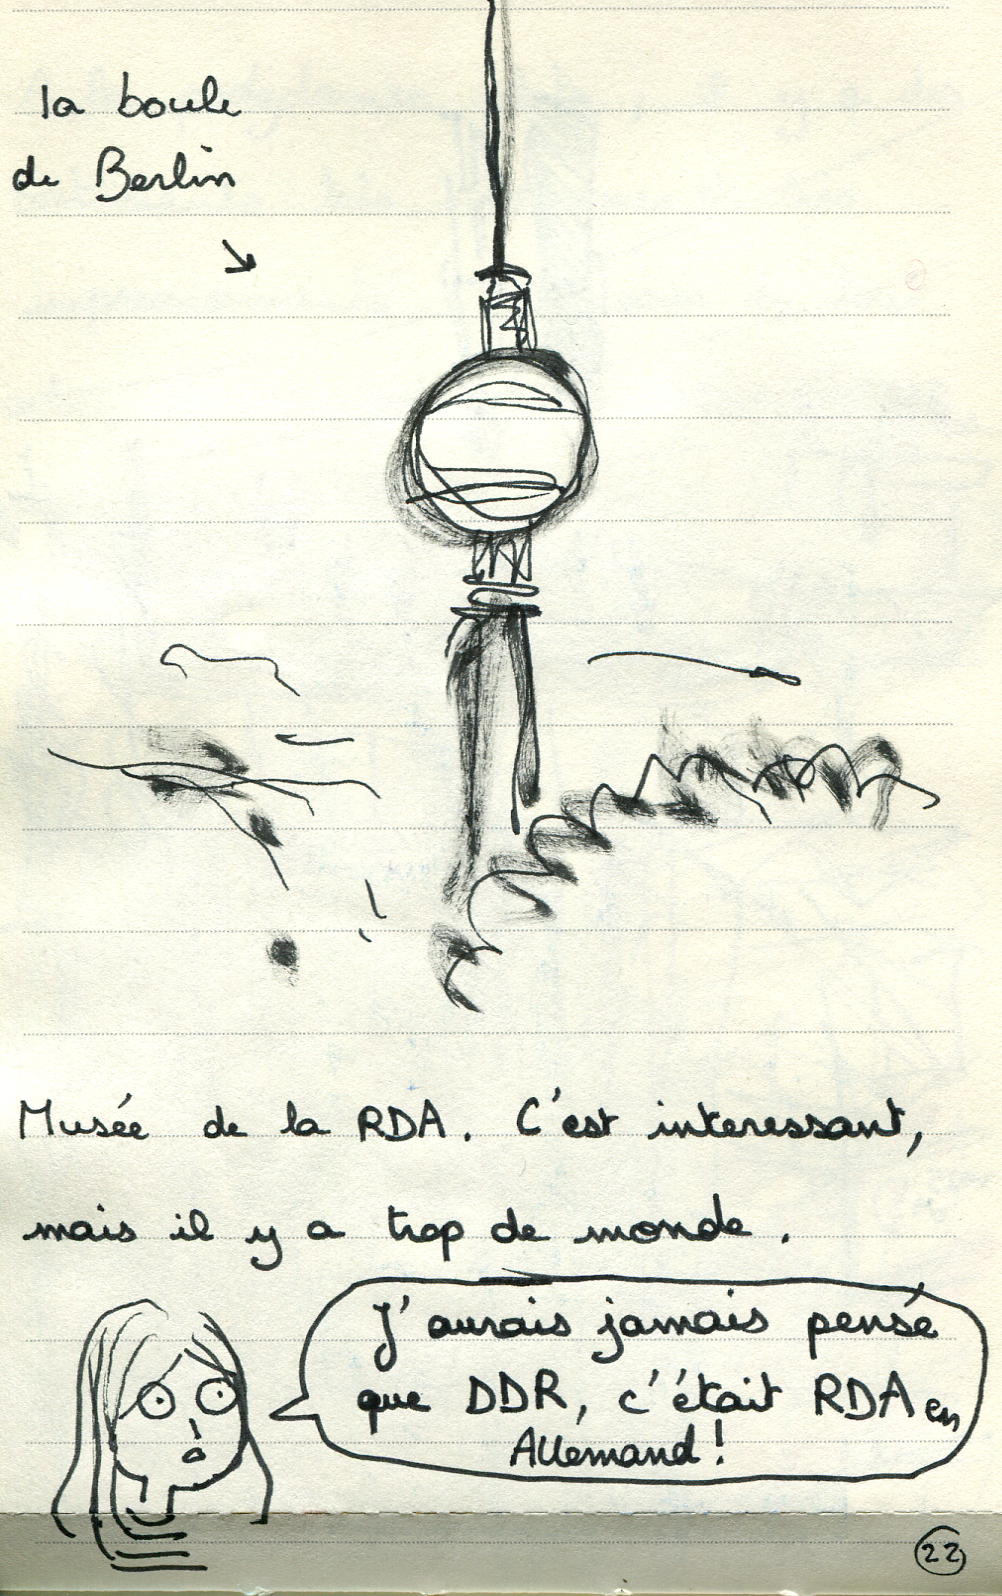 la boule
de Berlin
Musée de la RDA. C'est interessant,
mais il y a trop de monde.
J'aurais jamais pensé
que DDR, c'était RDA en
Allemand!
22